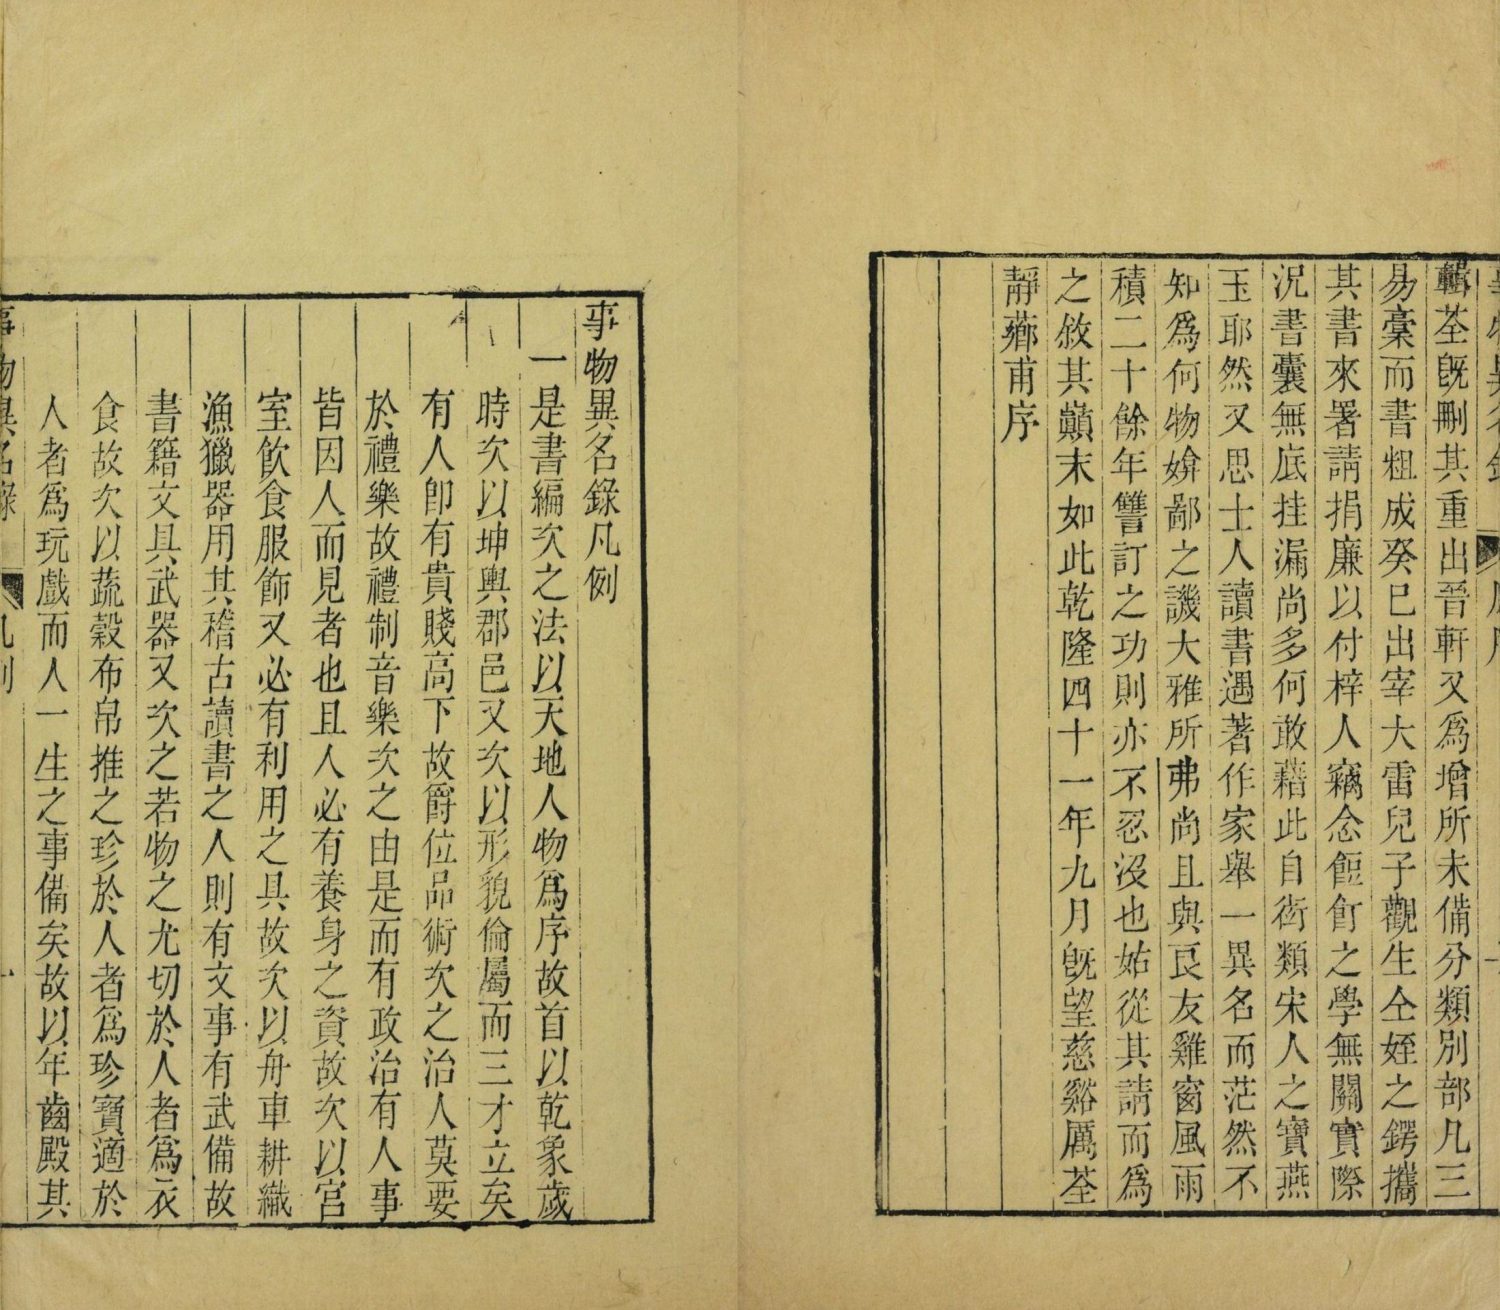 輯荃旣刪其重出晉軒又爲增所未備分類別部凡三
易稾而書粗成癸巳出宰大雷兒子觀生仝姪之鍔攜
其書來署請捐廉以付梓人竊念飽飣之學無關實際
況書囊無底挂漏尚多何敢藉此自衒類宋人之寶燕
玉耶然又思士人讀書遇著作家舉一異名而茫然不
知爲何物媕鄙之譏大雅所弗尚且與良友雞窗風雨
積二十餘年讐訂之功則亦不忍沒也姑從其請而爲
之敘其巔末如此乾隆四十一年九月旣望慈谿厲荃
靜薌甫序
事物異名錄凡例
一是書編次之法以天地人物爲序故首以乾象歲
時次以坤輿郡邑又次以形貌倫屬而三才立矣
有人卽有貴賤高下故爵位品術次之治人莫要
於禮樂故禮制音樂次之由是而有政治有人事
皆因人而見者也且人必有養身之資故次以宮
室飲食服飾又必有利用之具故次以舟車耕織
漁獵器用其稽古讀書之人則有文事有武備故
書籍文具武器又次之若物之尤切於人者爲衣
食故次以蔬穀布帛推之珍於人者爲珍寶適於
人者爲玩戲而人一生之事備矣故以年齒殿其